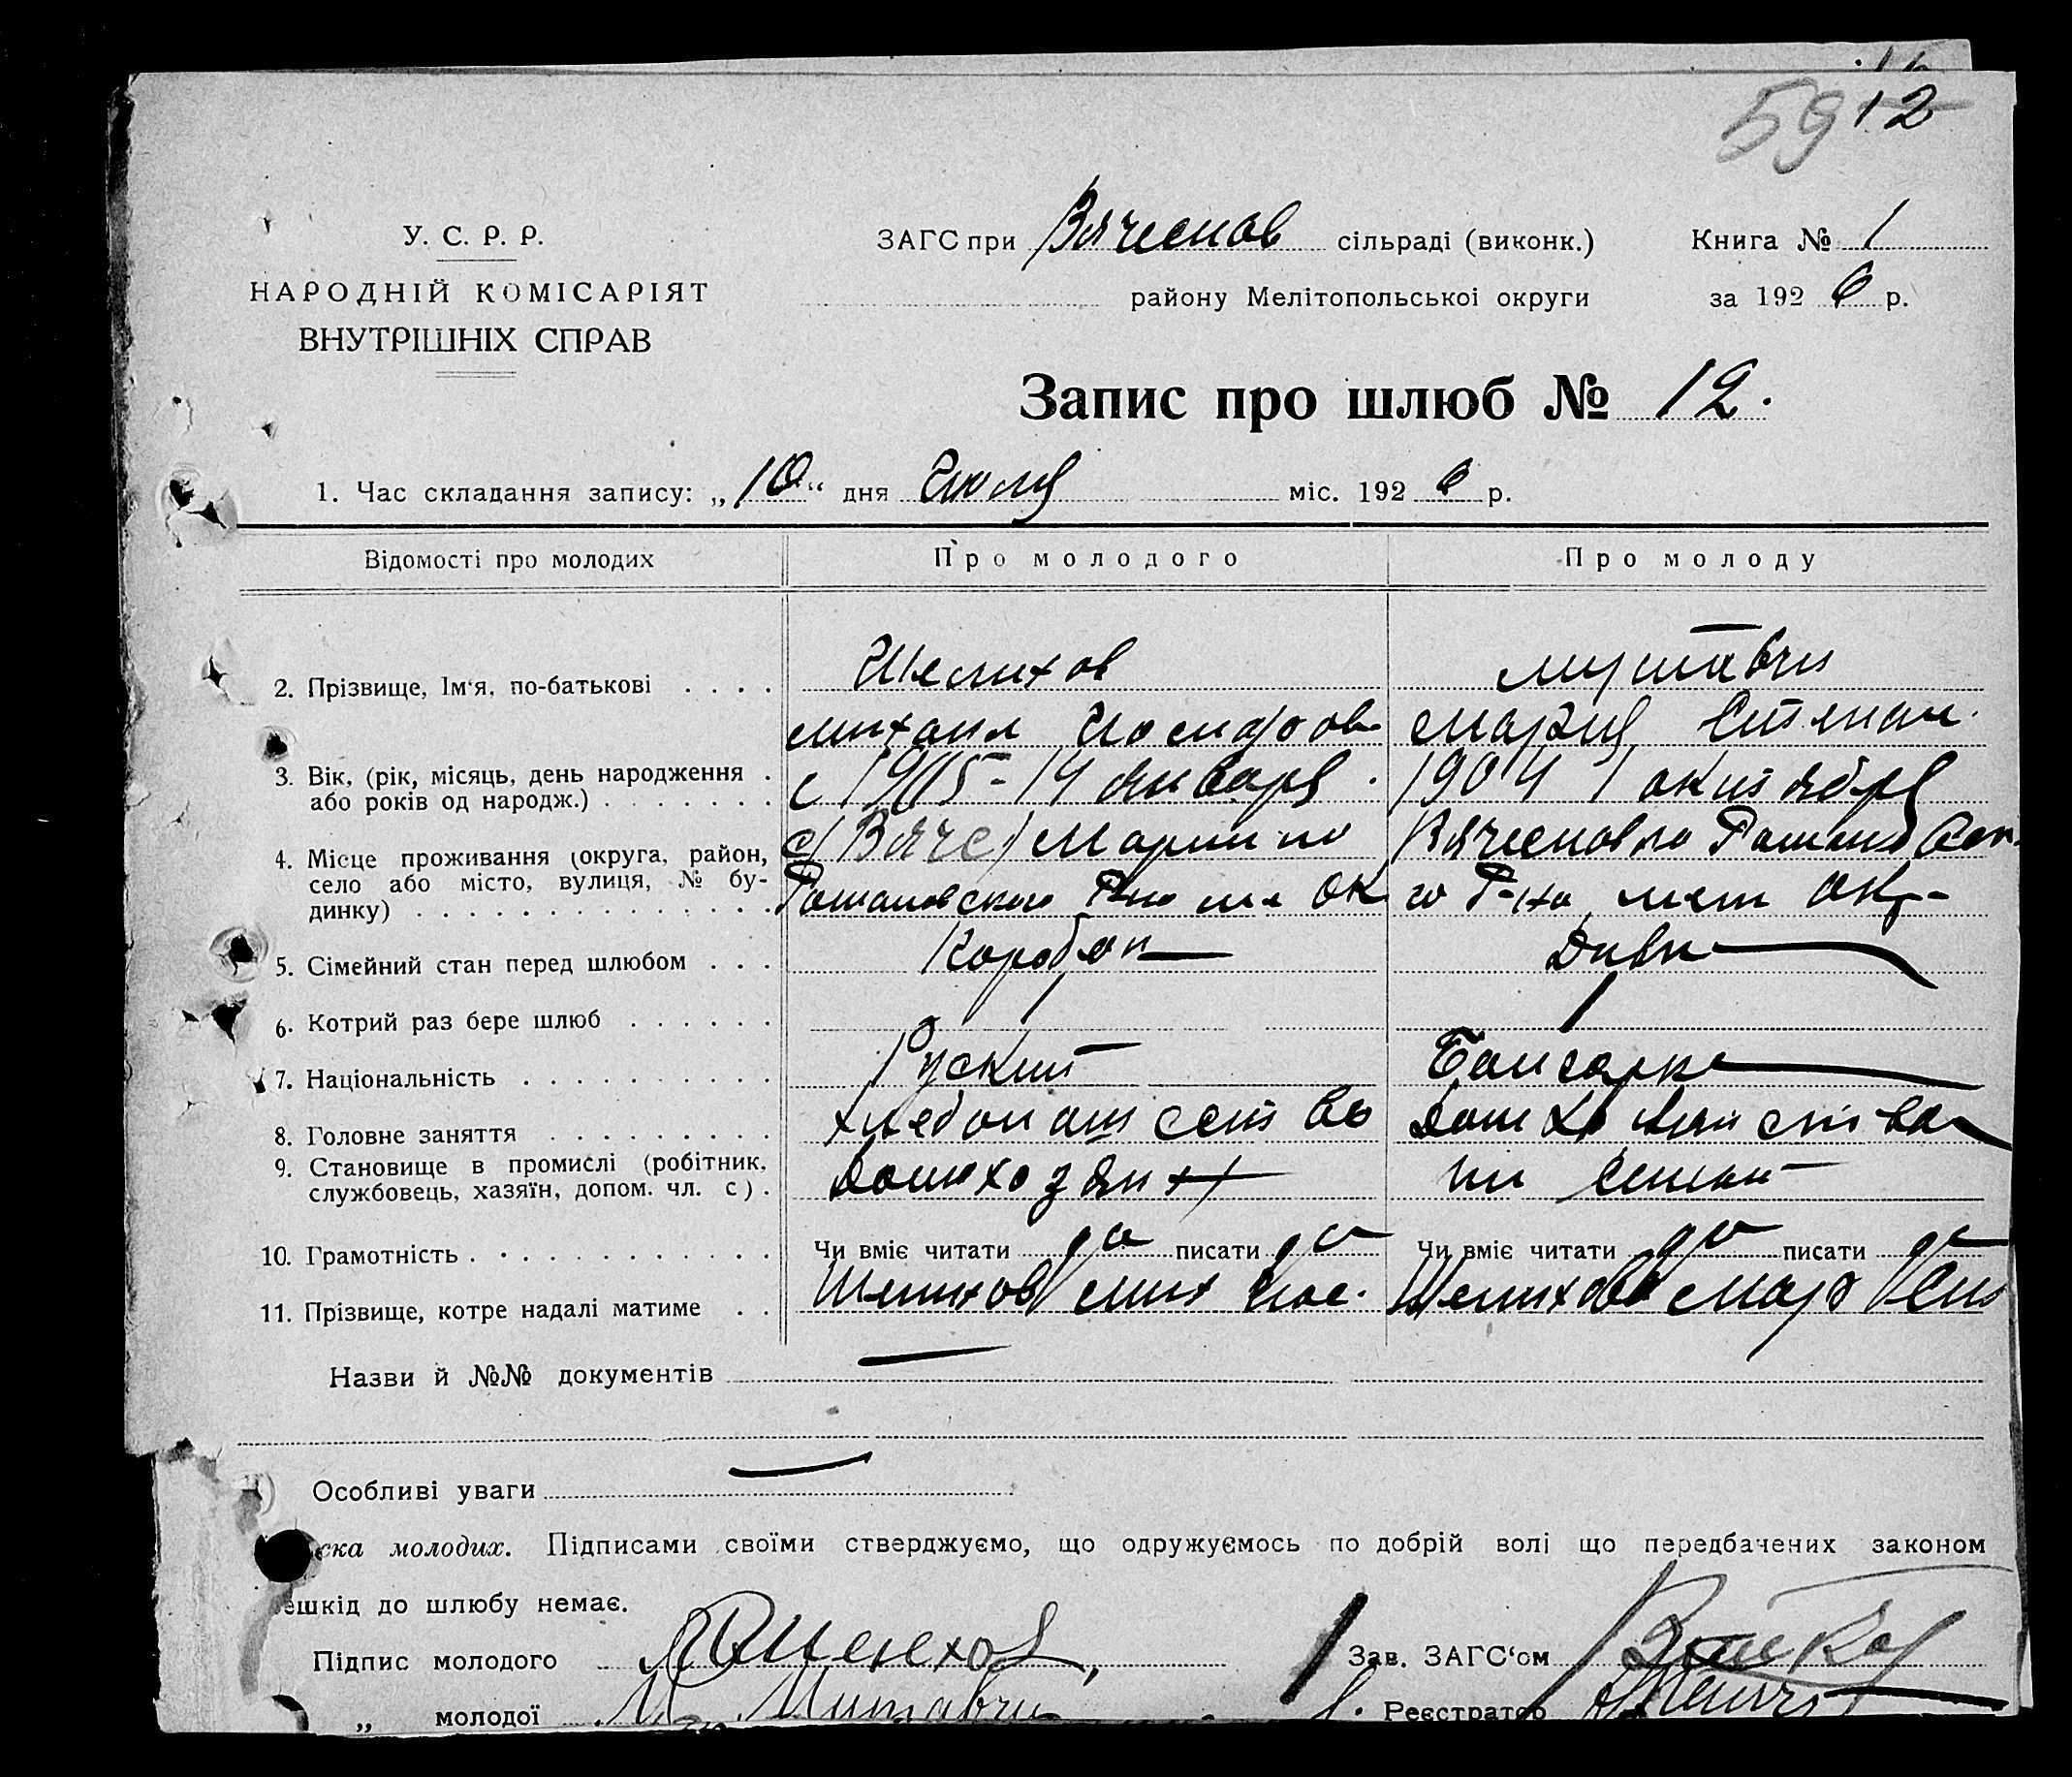 59 12
У. С. Р. Р.
НАРОДНІЙ КОМІСАРІЯТ
ВНУТРІШНІХ СПРАВ
ЗАГС при Вячеслов сільраді (виконк.) Книга № 1
району Мелітопольськоі округи за 192 6 р.
Запис про шлюб № 12.
1. Час складання запису: „10“ дня Июля міс. 192 6 р.
Відомості про молодих Про молодого Про молоду
2. Прізвище, Ім‘я, по-батькові . . . . Шелихов
Михаил Иосифов Мария Степан.
3. Вік, (рік, місяць, день народження . або років од народж.) . . . . . . . с 1905 - 14 января . 1904 1 октября
4. Місце проживання (округа, район, село або місто, вулиця, № будинку) . . . . . . . . . . . . . . .
5. Сімейний стан перед шлюбом . . . Дивка
6. Котрий раз бере шлюб . . . . . . 1 1
7. Національність . . . . . . . . . . Руский Болгарка
8. Головне заняття . . . . . . . . . хлебопашество
9. Становище в промислі (робітник, службовець, хазяїн, допом. чл. с) .
10. Грамотність . . . . . . . . . . . . Чи вміє читати да писати да Чи вміє читати да писати да
11. Прізвище, котре надалі матиме . . Шелихов Мих Иос. Шелихова Мар Сте
Назви й №№ документів —
Особливі уваги —
ска молодих. Підписами своїми стверджуємо, що одружуємось по добрій волі що передбачених законом
ешкід до шлюбу немає.
Підпис молодого Шелехов Зав. ЗАГС‘ом
„ молодої М. Реєстратор